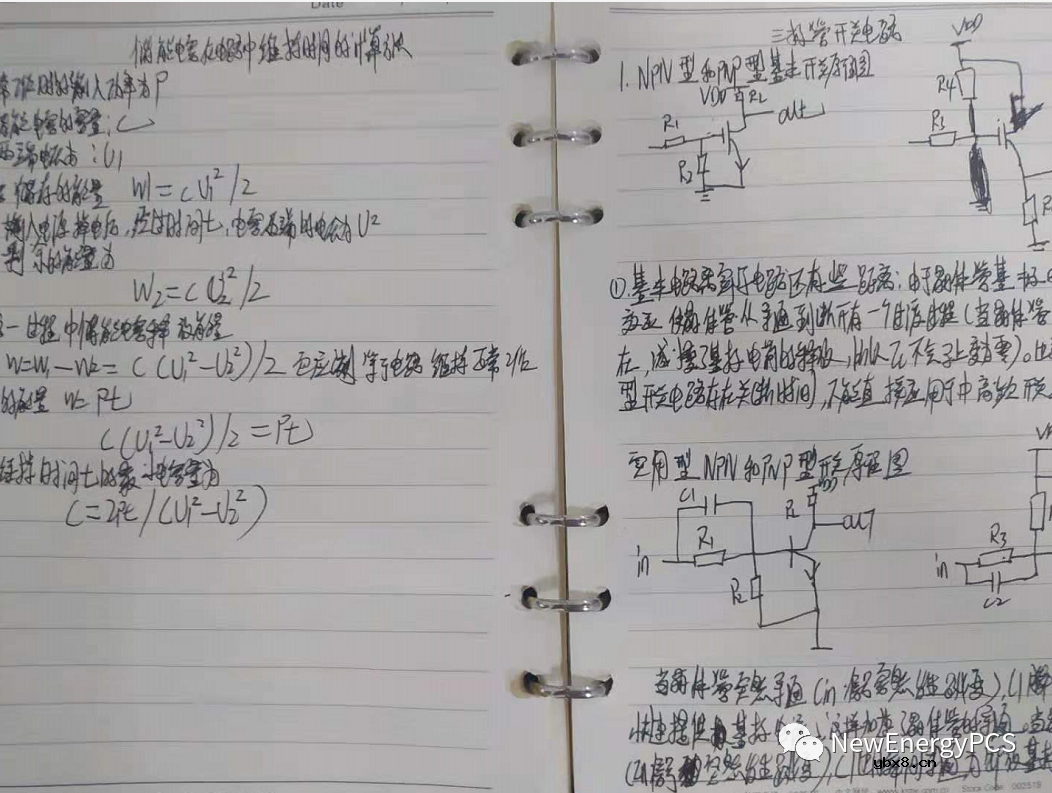 Date
储能电容在电路中维持时间的计算方法
常工作时的输入功率为P
储能电容的容量：C
两端电压为：U1
储存的能量 W1=CU1²/2
输入电源掉电后，经过时间t，电容两端的电压为U2
剩余的能量为
W2=CU2²/2
一过程中储能电容释放能量
W=W1-W2= C(U1²-U2²)/2 它应该等于电路维持正常工作
的能量 W=Pt
C(U1²-U2²)/2=Pt
维持时间t的最小电容量为
C=2Pt/(U1²-U2²)
三极管开关电路
1. NPN型和PNP型基本开关原理图
VDD R2
out
R1
R2
VDD
R4
R3
R
①.基本电路离实际电路还有些距离：由于晶体管基极
使晶体管从导通到断开有一个过度过程（当晶体管
在，减慢了基极电荷的释放，所以Ic不会马上变为零）。
型开关电路存在关断时间，不能直接应用于中高频开关
实用型NPN和PNP型开关原理图
C1
VDD
R
out
in
R1
R2
in
R3
C2
当晶体管突然导通（in信号突然发生跳变），C1
快速提供基极电流，这样加速了晶体管的导通。当
（in信号突然发生跳变），C1
NewEnergyPCS
gbx8.cn